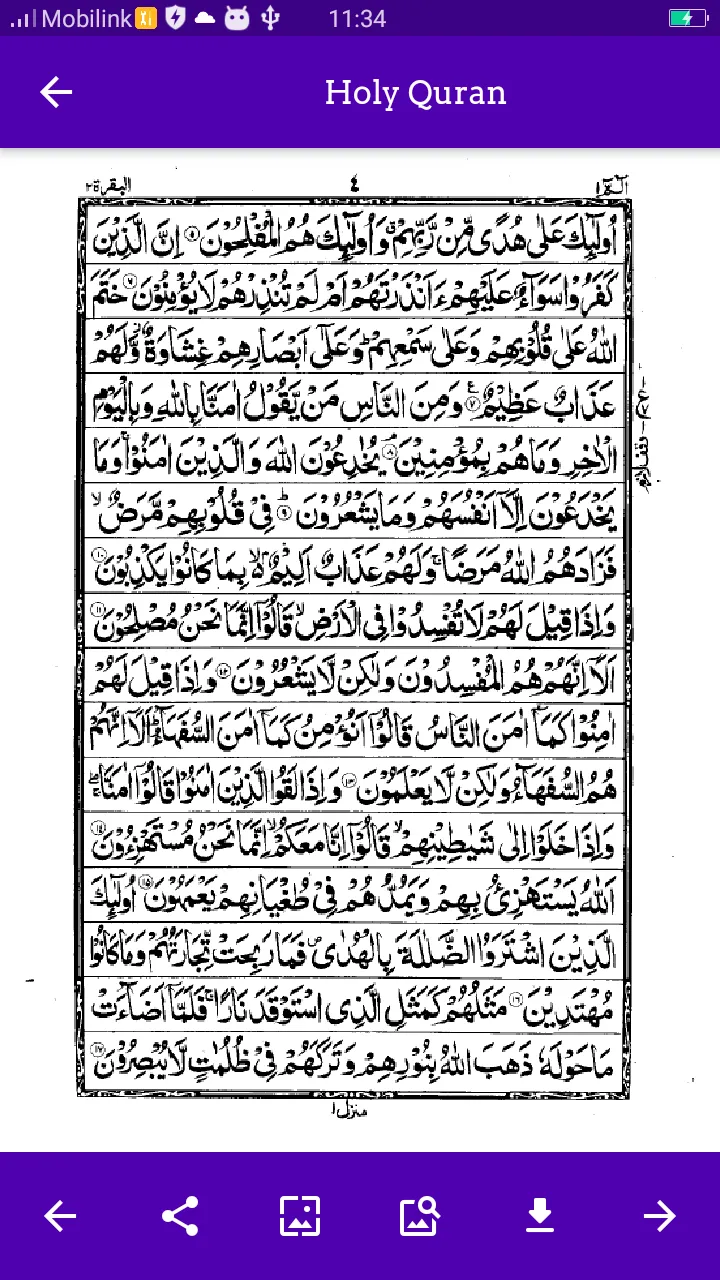 Mobilink 11:34
Holy Quran
البقرة ٢ ٤ الٓمّٓ ١
اُولٰٓئِكَ عَلٰى هُدًى مِّنْ رَّبِّهِمْ ۗ وَاُولٰٓئِكَ هُمُ الْمُفْلِحُوْنَ ﴿۵﴾ اِنَّ الَّذِيْنَ
كَفَرُوْا سَوَآءٌ عَلَيْهِمْ ءَاَنْذَرْتَهُمْ اَمْ لَمْ تُنْذِرْهُمْ لَا يُؤْمِنُوْنَ ﴿۶﴾ خَتَمَ
اللّٰهُ عَلٰى قُلُوْبِهِمْ وَعَلٰى سَمْعِهِمْ ؕ وَعَلٰٓى اَبْصَارِهِمْ غِشَاوَةٌ ۫ وَّلَهُمْ
عَذَابٌ عَظِيْمٌ ﴿۷﴾ وَمِنَ النَّاسِ مَنْ يَّقُوْلُ اٰمَنَّا بِاللّٰهِ وَبِالْيَوْمِ
الْاٰخِرِ وَمَا هُمْ بِمُؤْمِنِيْنَ ﴿۸﴾ يُخٰدِعُوْنَ اللّٰهَ وَالَّذِيْنَ اٰمَنُوْا ۚ وَمَا
يَخْدَعُوْنَ اِلَّاۤ اَنْفُسَهُمْ وَمَا يَشْعُرُوْنَ ﴿۹﴾ ؕ فِيْ قُلُوْبِهِمْ مَّرَضٌ ۙ
فَزَادَهُمُ اللّٰهُ مَرَضًا ۚ وَلَهُمْ عَذَابٌ اَلِيْمٌۢ ۙ بِمَا كَانُوْا يَكْذِبُوْنَ ﴿۱۰﴾
وَاِذَا قِيْلَ لَهُمْ لَا تُفْسِدُوْا فِى الْاَرْضِ ۙ قَالُوْۤا اِنَّمَا نَحْنُ مُصْلِحُوْنَ ﴿۱۱﴾
اَلَاۤ اِنَّهُمْ هُمُ الْمُفْسِدُوْنَ وَلٰكِنْ لَّا يَشْعُرُوْنَ ﴿۱۲﴾ وَاِذَا قِيْلَ لَهُمْ
اٰمِنُوْا كَمَاۤ اٰمَنَ النَّاسُ قَالُوْۤا اَنُؤْمِنُ كَمَاۤ اٰمَنَ السُّفَهَآءُ ؕ اَلَاۤ اِنَّهُمْ
هُمُ السُّفَهَآءُ وَلٰكِنْ لَّا يَعْلَمُوْنَ ﴿۱۳﴾ وَاِذَا لَقُوا الَّذِيْنَ اٰمَنُوْا قَالُوْۤا اٰمَنَّا ۖۚ
وَاِذَا خَلَوْا اِلٰى شَيٰطِيْنِهِمْ ۙ قَالُوْۤا اِنَّا مَعَكُمْ ۙ اِنَّمَا نَحْنُ مُسْتَهْزِءُوْنَ ﴿۱۴﴾
اَللّٰهُ يَسْتَهْزِئُ بِهِمْ وَيَمُدُّهُمْ فِيْ طُغْيَانِهِمْ يَعْمَهُوْنَ ﴿۱۵﴾ اُولٰٓئِكَ
الَّذِيْنَ اشْتَرَوُا الضَّلٰلَةَ بِالْهُدٰى ۪ فَمَا رَبِحَتْ تِّجَارَتُهُمْ وَمَا كَانُوْا
مُهْتَدِيْنَ ﴿۱۶﴾ مَثَلُهُمْ كَمَثَلِ الَّذِى اسْتَوْقَدَ نَارًا ۚ فَلَمَّاۤ اَضَآءَتْ
مَا حَوْلَهٗ ذَهَبَ اللّٰهُ بِنُوْرِهِمْ وَتَرَكَهُمْ فِيْ ظُلُمٰتٍ لَّا يُبْصِرُوْنَ ﴿۱۷﴾
منزل ١